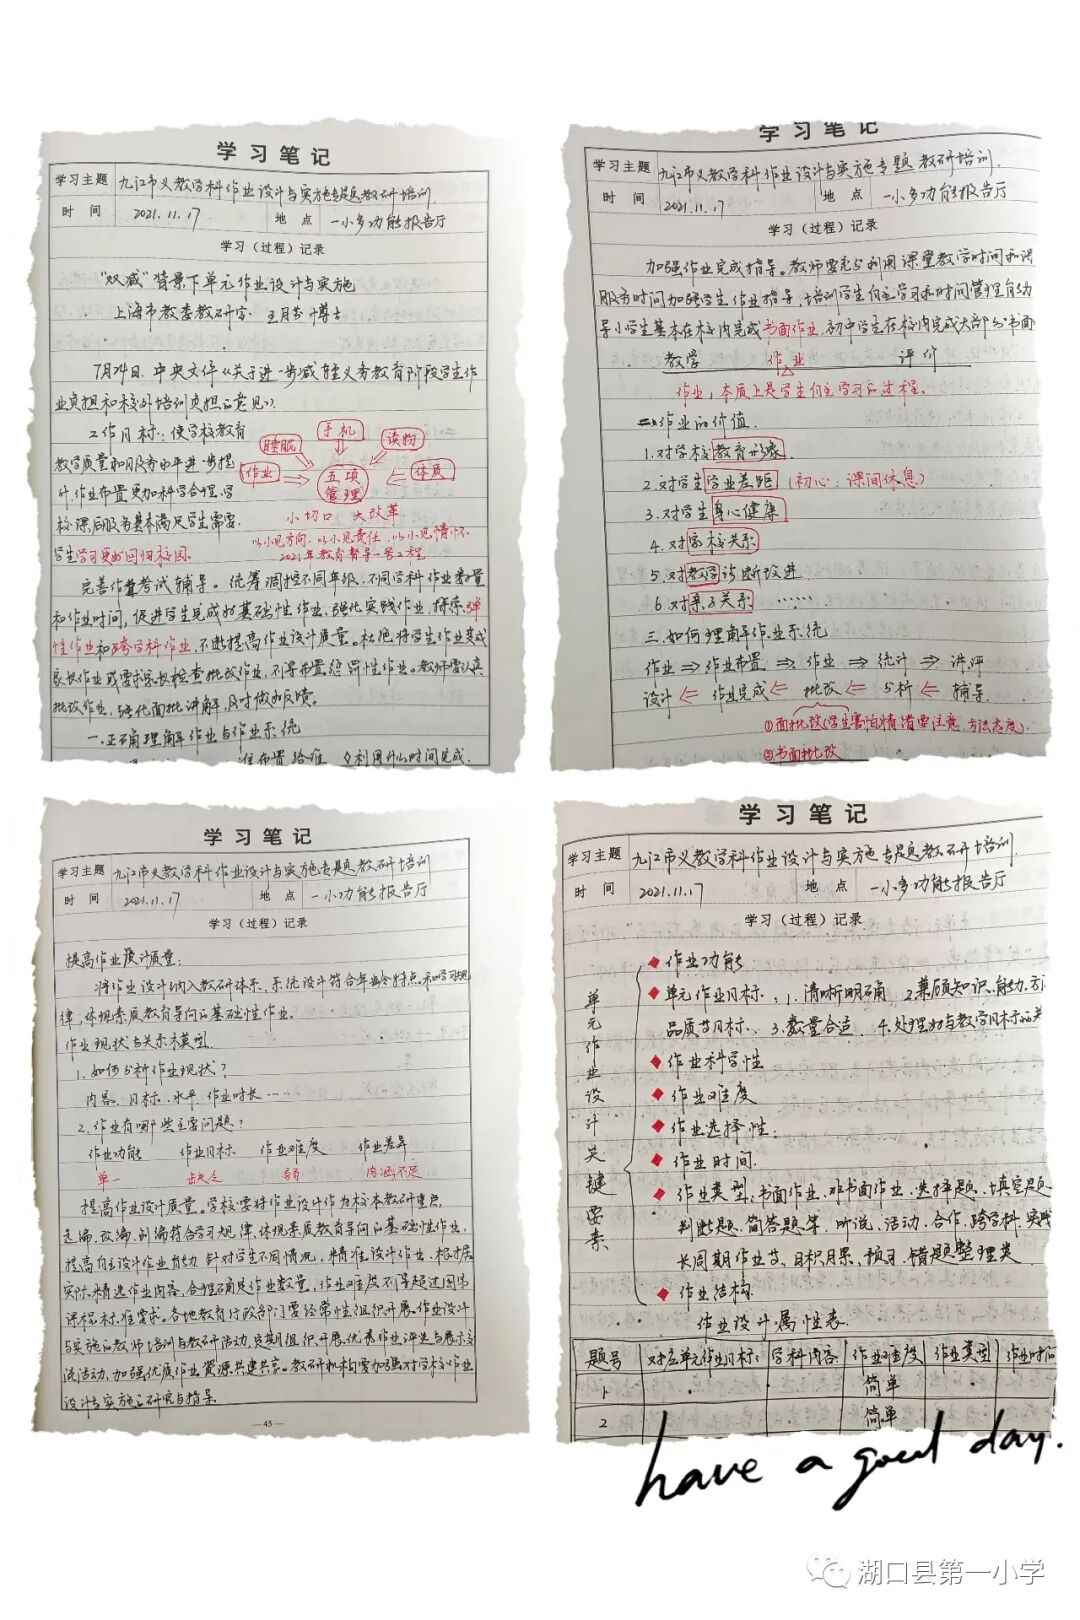 学习笔记
学习主题 九江市义教学科作业设计与实施专题教研培训
时间 2021.11.17 地点 一小多功能报告厅
学习（过程）记录
"双减"背景下单元作业设计与实施
上海市教委教研室 王月芬博士
7月24日.中央文件《关于进一步减轻义务教育阶段学生作
业负担和校外培训负担的意见》.
工作目标：使学校教育
教学质量和服务水平进一步提
升.作业布置更加科学合理.学
校课后服务基本满足学生需要.
学生学习更好回归校园.
睡眠 手机 读物
作业 五项管理 体质
小切口 大改革
以小见方向.以小见责任.以小见情怀
2021年教育督导一号工程
完善作业考试辅导。统筹调控不同年级.不同学科作业数量
和作业时间,促进学生完成好基础性作业.强化实践作业.探索弹
性作业和跨学科作业,不断提高作业设计质量。杜绝将学生作业变成
家长作业或要求家长检查批改作业,不得布置惩罚性作业。教师要认真
批改作业,强化面批讲解,及时做好反馈。
一.正确理解作业与作业系统
谁布置给谁 利用什么时间完成.
学习笔记
学习主题 九江市义教学科作业设计与实施专题教研培训.
时间 2021.11.17 地点 一小多功能报告厅
学习（过程）记录
加强作业完成指导。教师要充分利用课堂教学时间和课
服务时间加强学生作业指导,培养学生自主学习和时间管理能力
导小学生基本在校内完成书面作业.初中学生在校内完成大部分书面
教学 作业 评价
作业,本质上是学生自主学习的过程.
二.作业的价值.
1.对学校教育形象
2.对学生学业差距（初心：课间休息）
3.对学生身心健康
4.对家校关系
5.对教学诊断改进
6.对亲子关系……
三.如何理解作业系统
作业⇒作业布置⇒作业⇒统计⇒讲评
设计⇐作业完成⇐批改⇐分析⇐辅导
①面批改(学生害怕情绪要注意.方法态度).
②书面批改
学习笔记
学习主题 九江市义教学科作业设计与实施专题教研培训
时间 2021.11.17 地点 一小功能报告厅
学习（过程）记录
提高作业设计质量：
将作业设计纳入教研体系、系统设计符合年龄特点和学习规
律,体现素质教育导向的基础性作业。
作业现状与关系模型.
1.如何分析作业现状?
内容、目标、水平、作业时长……
2.作业有哪些主要问题?
作业功能 作业目标 作业难度 作业差异
单一 缺乏 弱 内涵不足
提高作业设计质量。学校要将作业设计作为校本教研重点.
选编、改编、创编符合学习规律、体现素质教育导向的基础性作业.
提高自主设计作业能力.针对学生不同情况,精准设计作业.根据
实际.精选作业内容,合理确定作业数量,作业难度不得超过国家
课程标准要求。各地教育行政部门要经常性组织开展作业设计
与实施的教师培训与教研活动,定期组织开展优秀作业评选与展示交
流活动,加强优质作业资源共建共享。教研机构要加强对学校作业
设计与实施的研究与指导.
—45—
学习笔记
学习主题 九江市义教学科作业设计与实施专题教研培训
时间 2021.11.17 地点 一小多功能报告厅
学习（过程）记录
单元作业设计关键要素
作业功能
单元作业目标：1.清晰明确 2.兼顾知识.能力.方
品质等目标. 3.数量合适 4.处理好与教学目标的关
作业科学性
作业难度
作业选择性：
作业时间.
作业类型：书面作业、非书面作业.选择题.填空题
判断题.简答题等.听说、活动、合作、跨学科.实践
长周期作业等.日积月累、预习、错题整理类
作业结构.
作业设计属性表.
题号 对应单元作业目标 学科内容 作业难度 作业类型 作业时间
1 简单
2 简单
have a good day.
湖口县第一小学